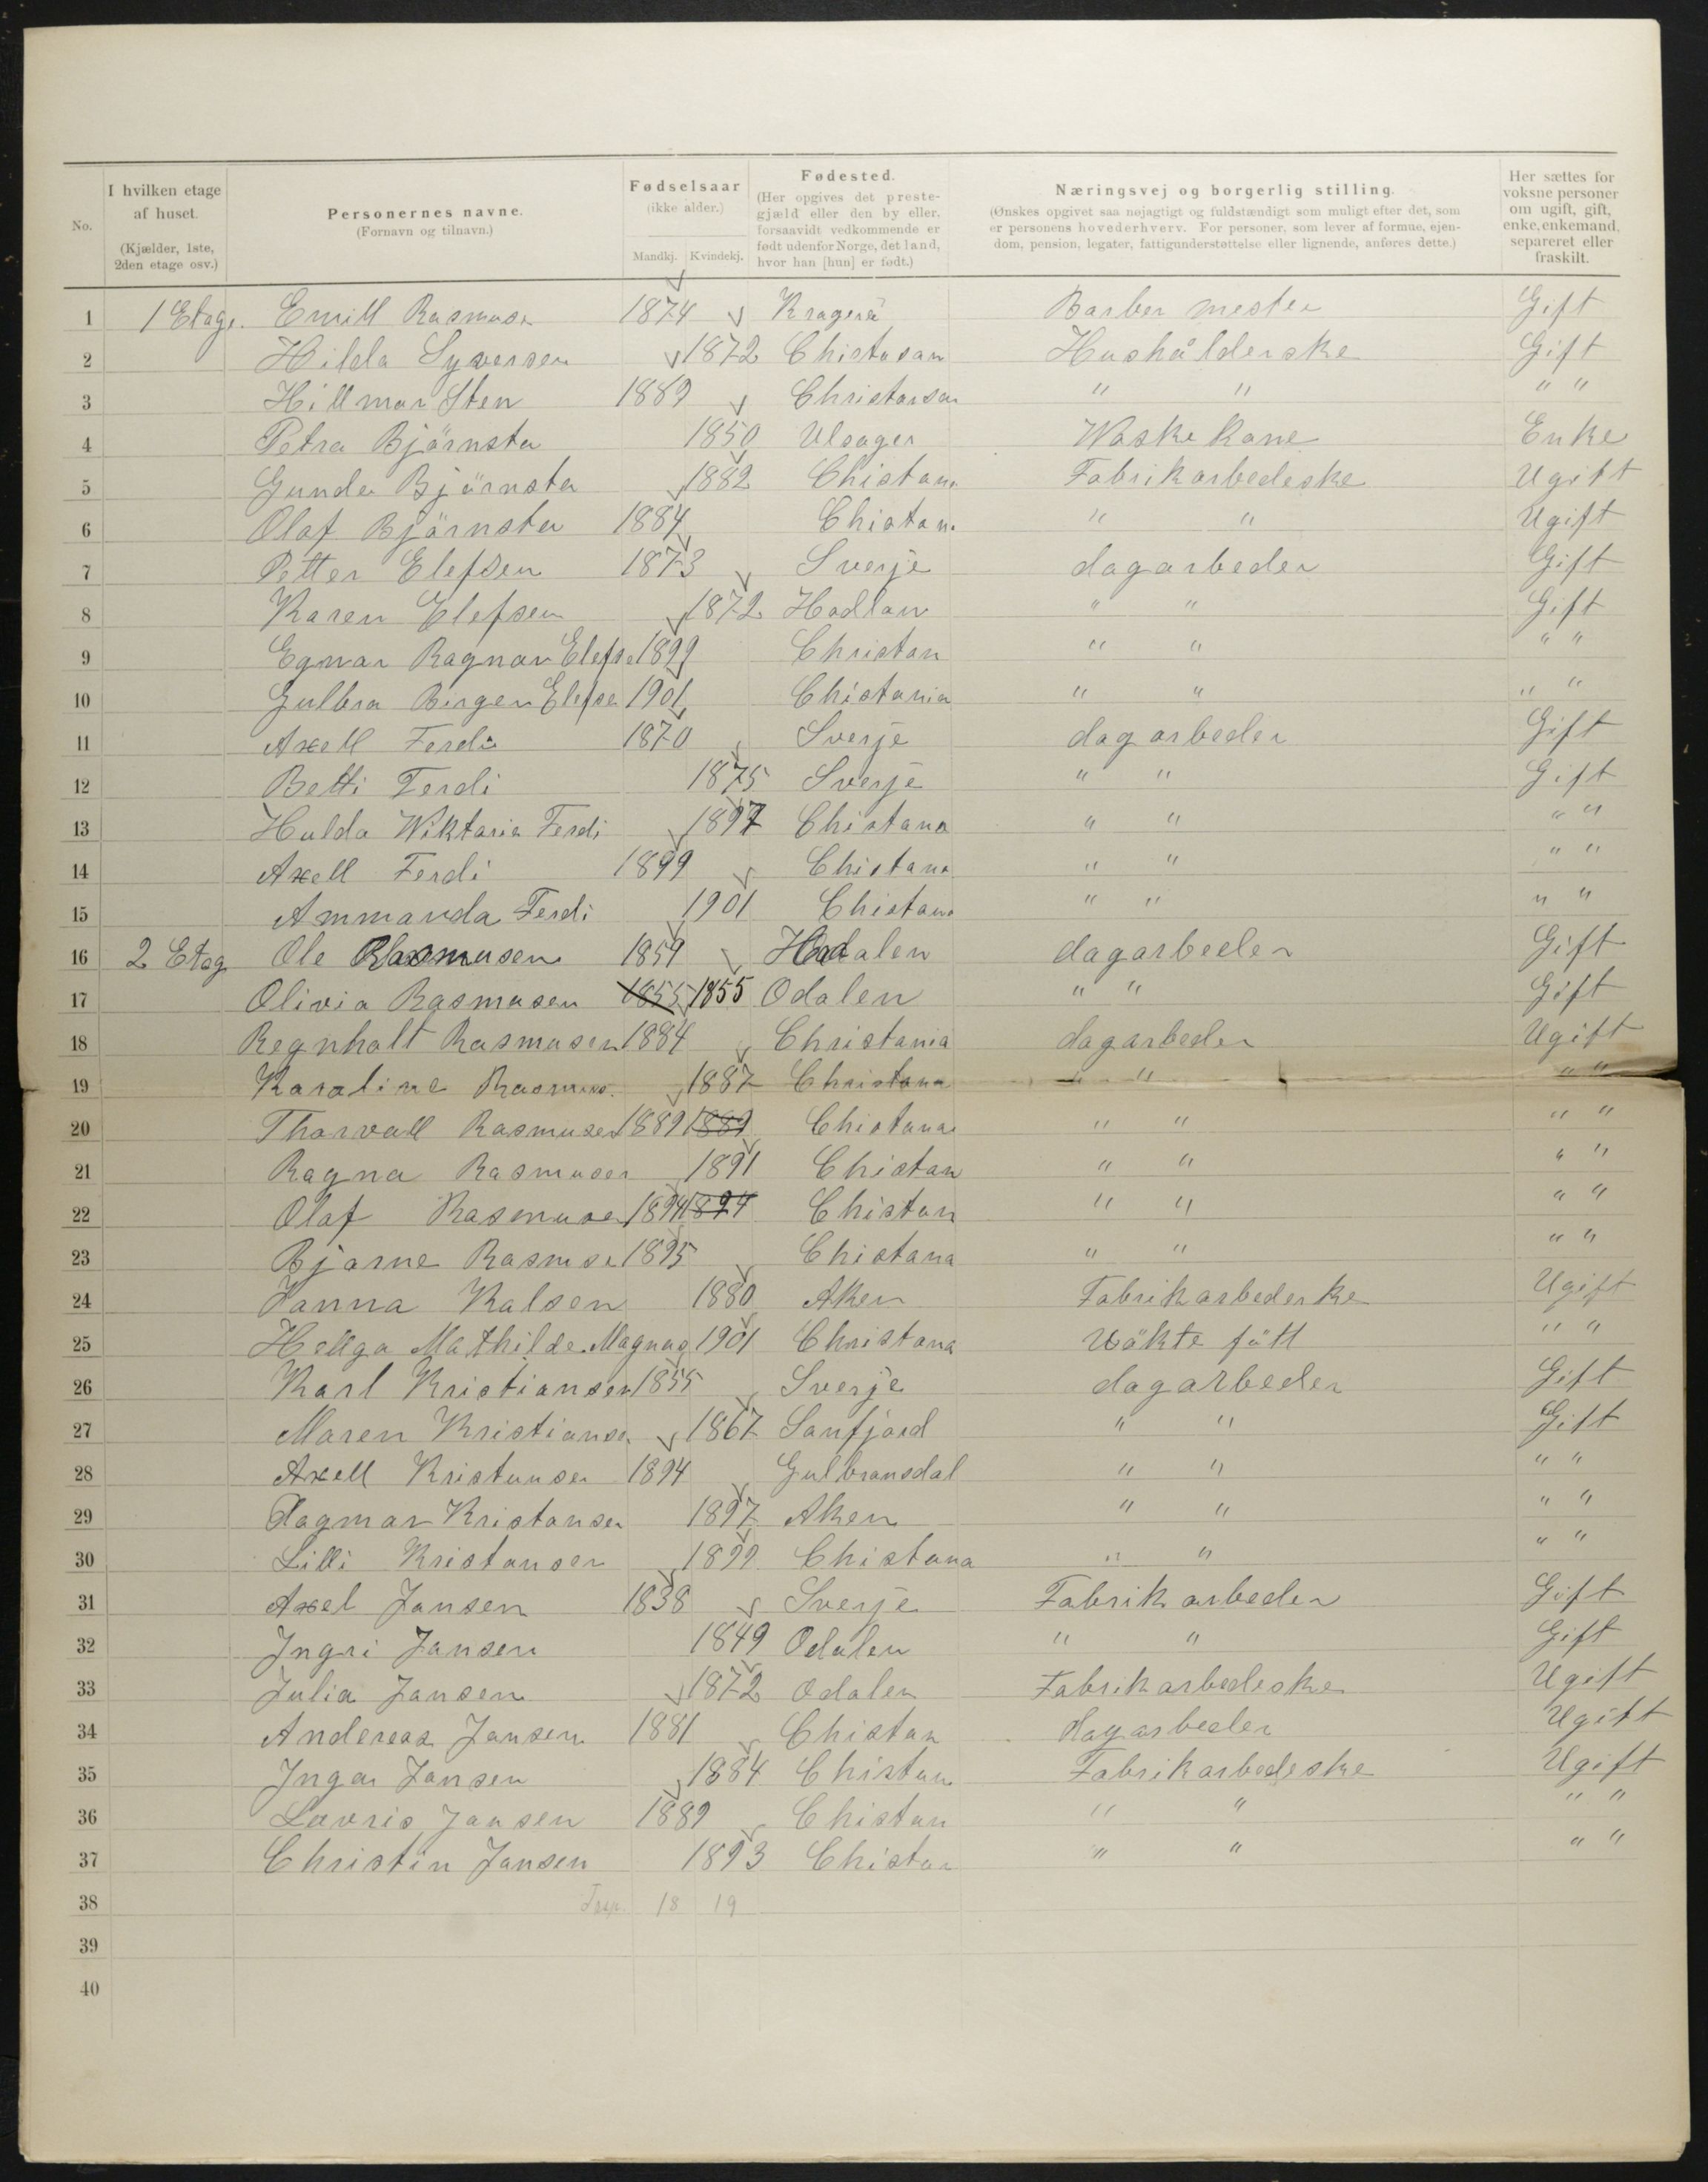 No.
I hvilken etage af huset.
(Kjælder, 1ste, 2den etage osv.)
Personernes navne.
(Fornavn og tilnavn.)
Fødselsaar
(ikke alder.)
Mandkj. Kvindekj.
Fødested.
(Her opgives det prestegjæld eller den by eller, forsaavidt vedkommende er født udenfor Norge, det land, hvor han [hun] er født.)
Næringsvej og borgerlig stilling.
(Ønskes opgivet saa nøjagtigt og fuldstændigt som muligt efter det, som er personens hovederhverv. For personer, som lever af formue, ejendom, pension, legater, fattigunderstøttelse eller lignende, anføres dette.)
Her sættes for voksne personer om ugift, gift, enke, enkemand, separeret eller fraskilt.
1 1 Etage. Emill Rasmusn 1874 Kragerä Barber mester Gift
2 Hilda Syversen 1872 Chistusan Hushålderske Gift
3 Hillmar Sten 1889 Christansan " " " "
4 Petra Björnsta 1850 Ulsager Waske kone Enke
5 Gunda Björnsta 1882 Chistan. Fabrikarbedeske Ugift
6 Olaf Björnsta 1884 Chistan. " " Ugift
7 Petter Elefsen 1873 Sverje dagarbeder Gift
8 Karen Elefsen 1872 Hadlan " " Gift
9 Egnar Ragnar Elefse 1899 Christan " " " "
10 Gulbra Birger Elefse 1901 Chistania " " " "
11 Axell Ferdi 1870 Sverje dagarbeder Gift
12 Betti Ferdi 1875 Sverje " " Gift
13 Hulda Wiktaria Ferdi 1897 Chistana " " " "
14 Axell Ferdi 1899 Chistana " " " "
15 Ammanda Ferdi 1901 Chistana " " " "
16 2 Etag Ole Rasmusen 1859 Hadalen dagarbeder Gift
17 Olivia Rasmusen 1855 1855 Odalen " " Gift
18 Regnhalt Rasmusen 1884 Christania dagarbeder Ugift
19 Karoline Rasmus. 1887 Christana " " " "
20 Thorvall Rasmusen 1889 1889 Chistana " " " "
21 Ragna Rasmusen 1891 Chistan " " " "
22 Olaf Rasmuse 1894 1894 Chistan " " " "
23 Bjarne Rasmse 1895 Chistana " " " "
24 Janna Kalsen 1880 Aken Fabrikarbederke Ugift
25 Hellga Mathilde Magnag 1901 Christana Uäkte fätt " "
26 Karl Kristiansen 1855 Sverje dagarbeder Gift
27 Maren Kristianse 1867 Sanfjord " " Gift
28 Axell Kristunsen 1894 Gulbransdal " " " "
29 Dagmar Kristansen 1897 Aken " " " "
30 Lilli Kristansen 1899 Chistana " " " "
31 Axel Jansen 1838 Sverje Fabrik arbeder Gift
32 Jngri Jansen 1849 Odalen " " Gift
33 Julia Jansen 1872 Odalen Fabrikarbedeske Ugift
34 Andereas Jansen 1881 Chistan dagarbeder Ugift
35 Jnga Jansen 1884 Christan Fabrikarbedeske Ugift
36 Lavris Jansen 1889 Chistan " " " "
37 Christin Jansen 1893 Chistan " " " "
38 18 19
39
40